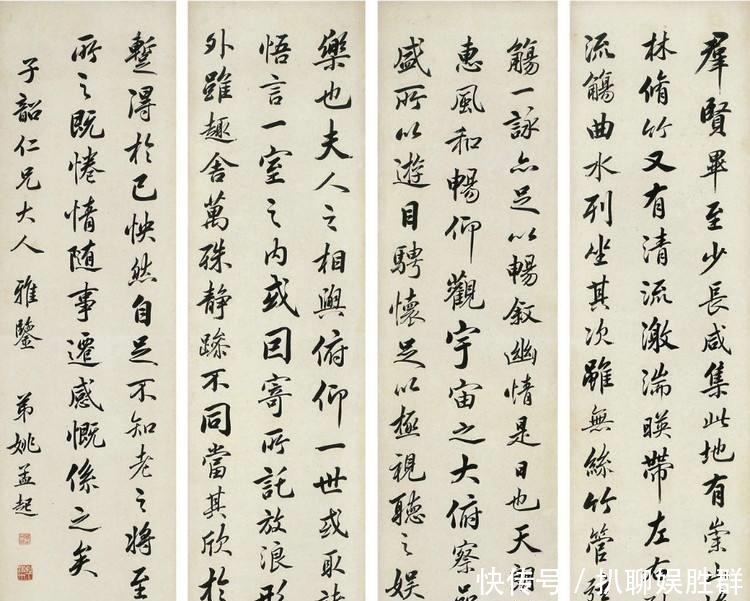 羣賢畢至少長咸集此地有崇
林脩竹又有清流激湍暎帶左右
流觴曲水列坐其次雖無絲竹管
觴一詠亦足以暢敘幽情是日也天
惠風和暢仰觀宇宙之大俯察品
盛所以遊目騁懷足以極視聽之娛
樂也夫人之相與俯仰一世或取諸
悟言一室之內或因寄所託放浪形
外雖趣舍萬殊靜躁不同當其欣於
蹔得於己怏然自足不知老之將至
所之既惓情隨事遷感慨係之矣
子韶仁兄大人雅鑒 弟姚孟起
快传号/扒聊娱胜群